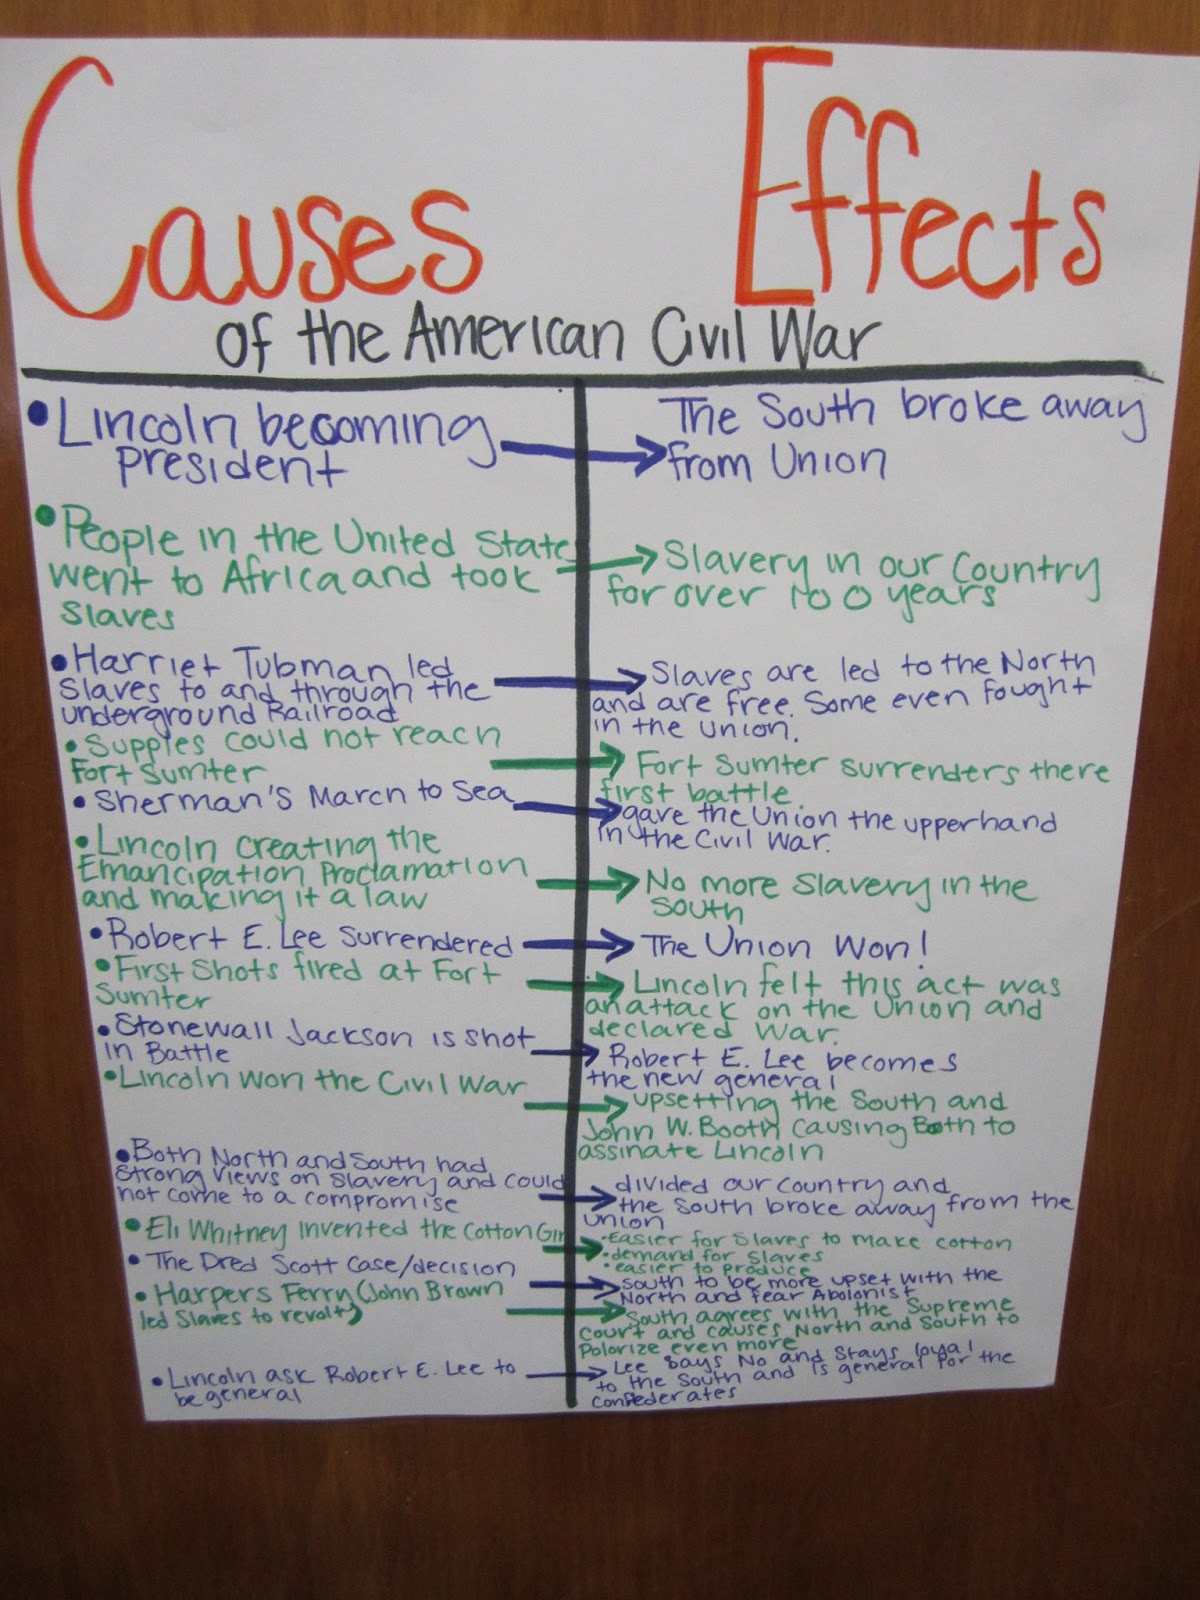 Causes Effects
of the American Civil War
• Lincoln becoming
president
The South broke away
from Union
• People in the United States
went to Africa and took
slaves
Slavery in our Country
for over 100 years
• Harriet Tubman led
slaves to and through the
underground Railroad
Slaves are led to the North
and are free. Some even fought
in the union.
• Supples could not reach
Fort Sumter
Fort Sumter surrenders there
first battle.
• Sherman's March to Sea
gave the Union the upperhand
in the Civil War.
• Lincoln creating the
Emancipation Proclamation
and making it a law
No more Slavery in the
South
• Robert E. Lee Surrendered
The Union Won!
• First Shots fired at Fort
Sumter
Lincoln felt this act was
an attack on the Union and
declared War.
• Stonewall Jackson is shot
in Battle
Robert E. Lee becomes
the new general
• Lincoln won the Civil War
upsetting the South and
John W. Booth causing Both to
assinate Lincoln
• Both North and South had
strong views on slavery and could
not come to a compromise
divided our country and
the South broke away from the
union
• Eli Whitney invented the Cotton Gin
• Easier for Slaves to make cotton
• demand for Slaves
• easier to produce
• The Dred Scott Case/decision
South to be more upset with the
North and fear Abolonist
• Harpers Ferry (John Brown
led Slaves to revolt)
South agrees with the Supreme
Court and causes North and South to
Polorize even more
• Lincoln ask Robert E. Lee to
be general
Lee says No and stays loyal
to the South and is general for the
Confederates